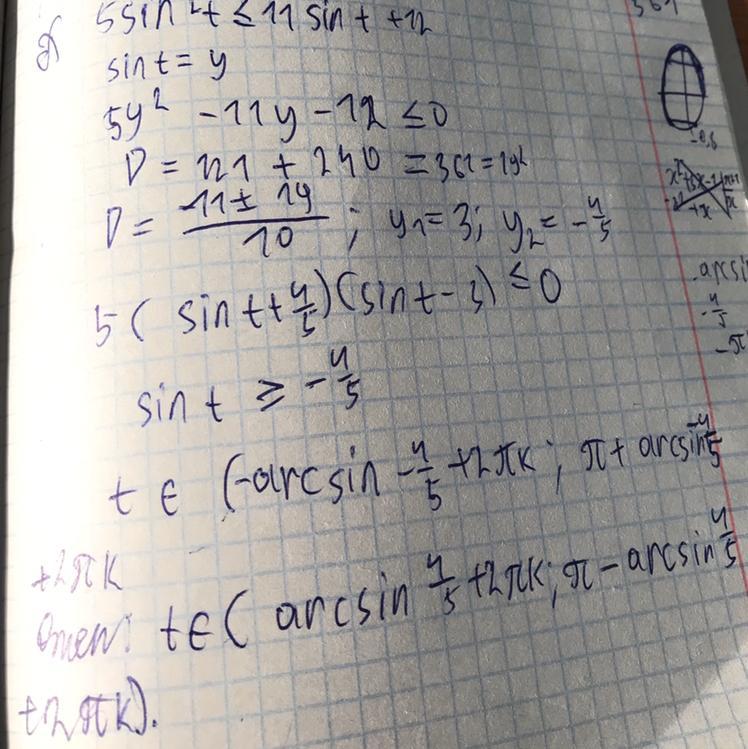 361
5sin²t ≤ 11 sin t + 12
sin t = y
5y² - 11y - 12 ≤ 0
D = 121 + 240 = 361 = 19²
D = -11 ± 19 / 10 ; y₁ = 3; y₂ = -4/5
5( sin t + 4/5)(sin t - 3) ≤ 0
sin t ≥ -4/5
t ∈ (-arcsin -4/5 + 2πk ; π + arcsin -4/5
+2πk
Ответ: t ∈ ( arcsin 4/5 + 2πk ; π - arcsin 4/5
+2πk).
-0,8
arcsin
-4/5
-π